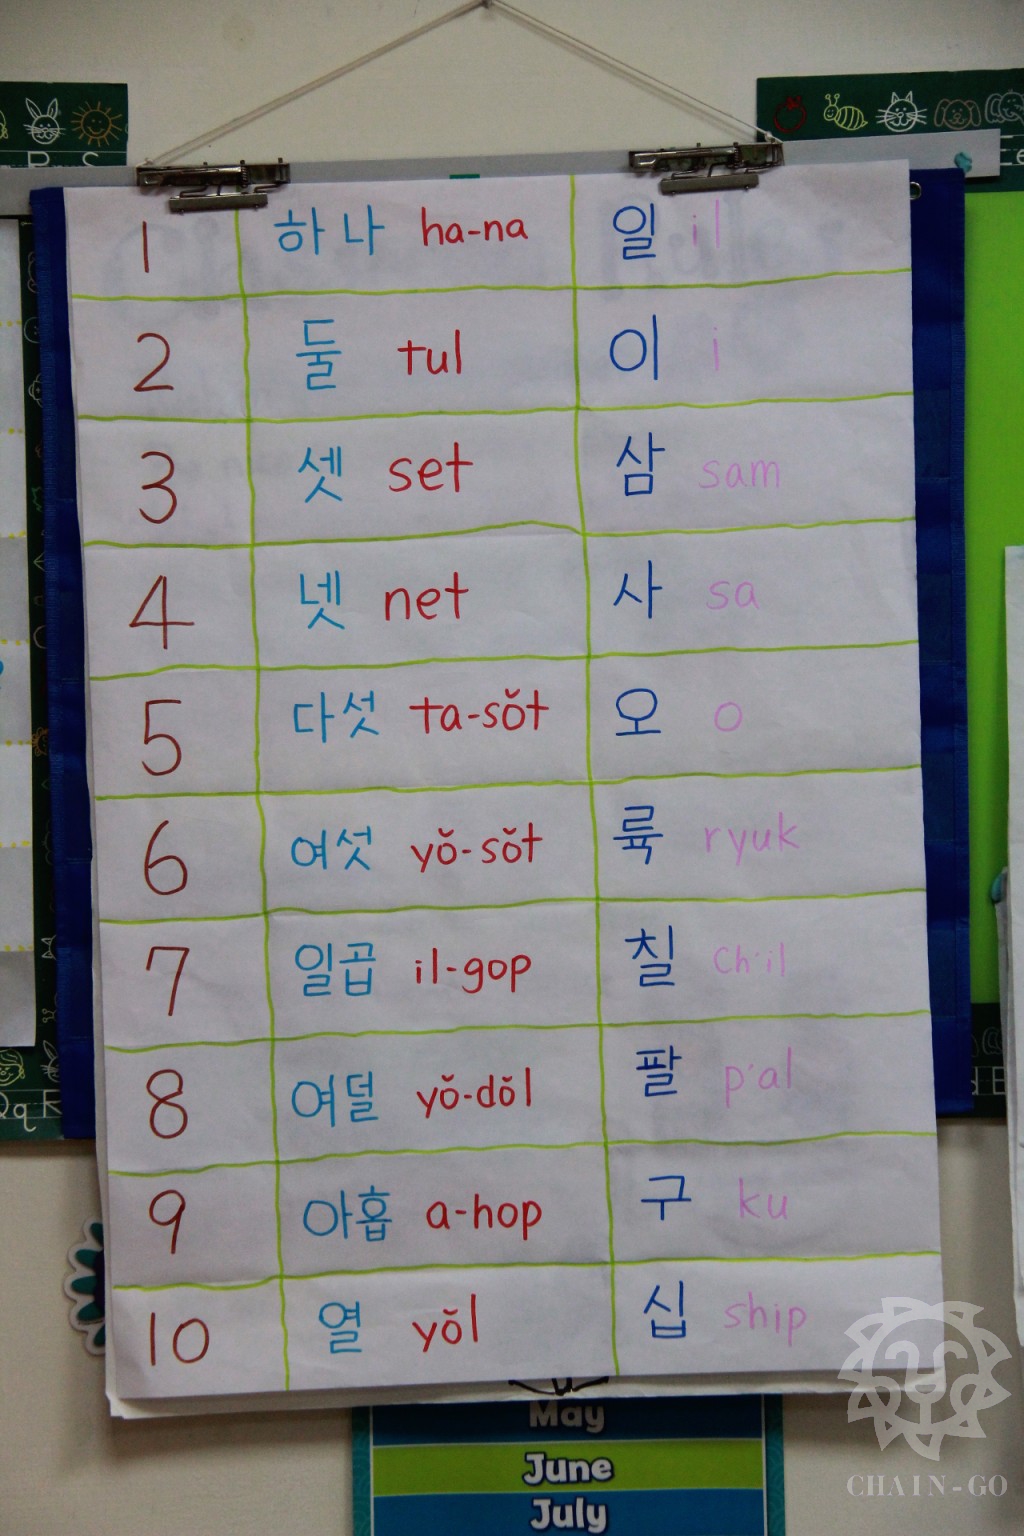 1 하나 ha-na 일 il
2 둘 tul 이 i
3 셋 set 삼 sam
4 넷 net 사 sa
5 다섯 ta-sŏt 오 o
6 여섯 yŏ-sŏt 륙 ryuk
7 일곱 il-gop 칠 ch'il
8 여덜 yŏ-dŏl 팔 p'al
9 아홉 a-hop 구 ku
10 열 yŏl 십 ship
May
June
July
CHAIN-GO